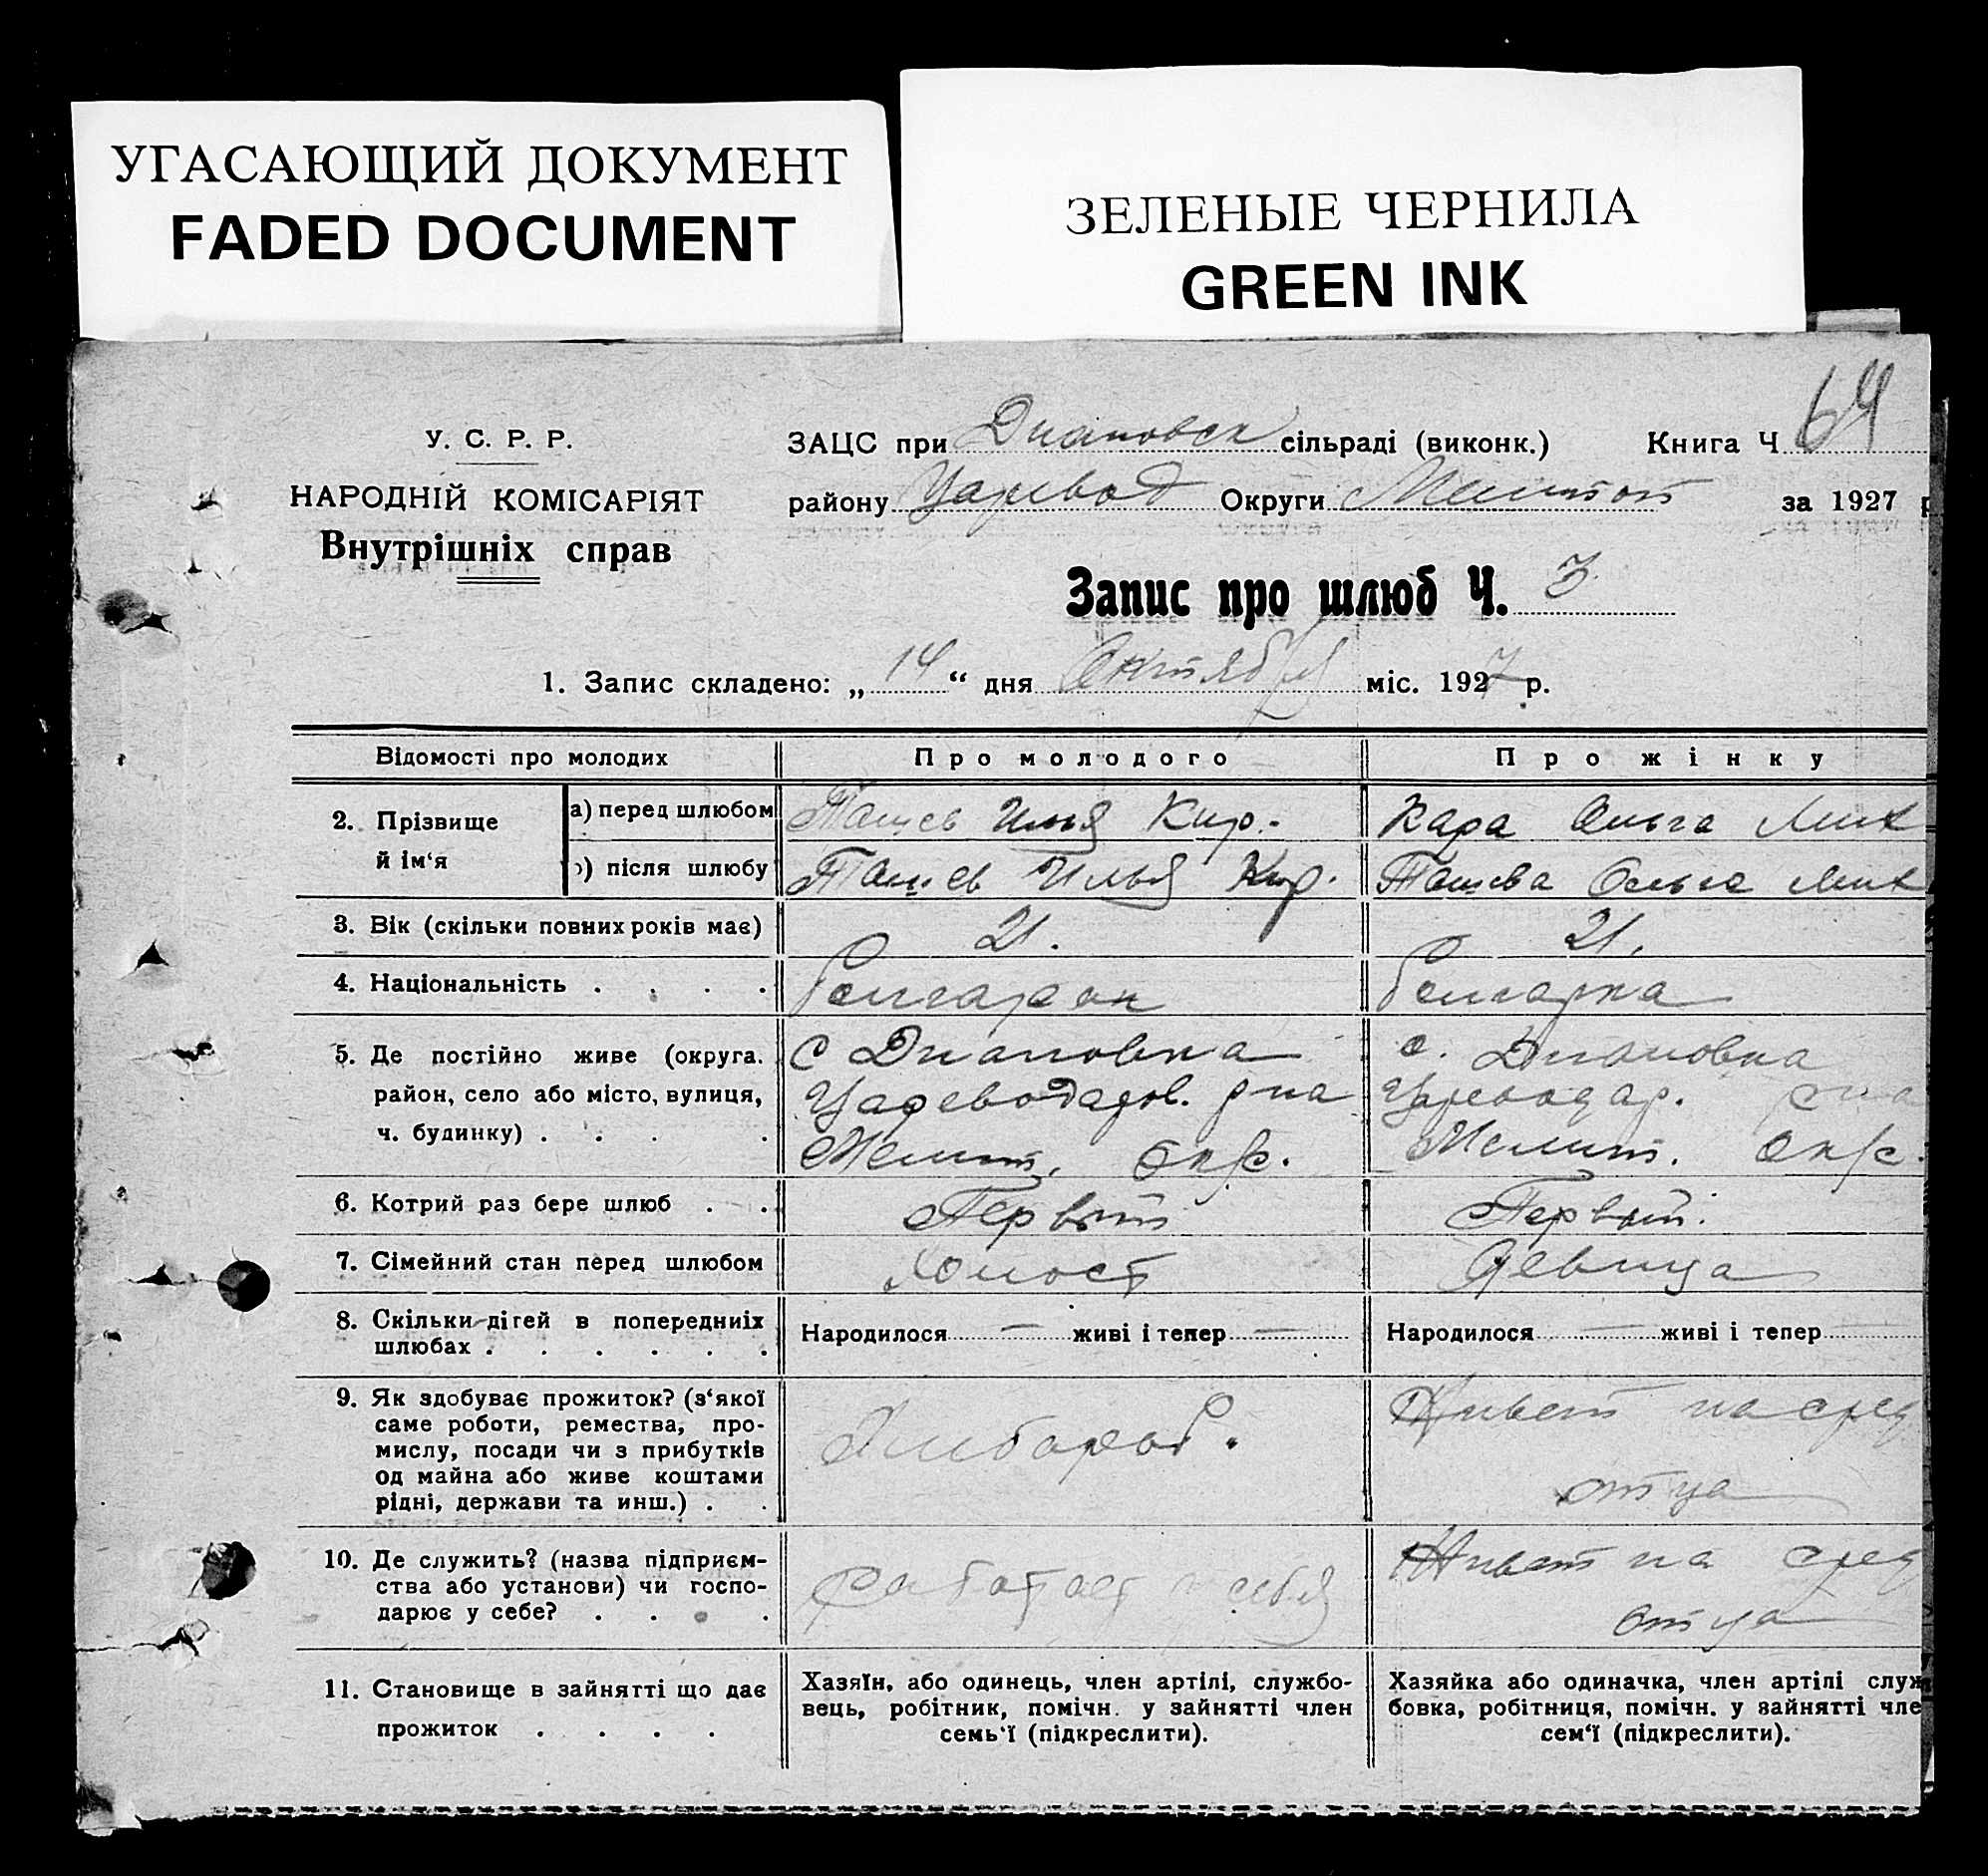 УГАСАЮЩИЙ ДОКУМЕНТ
FADED DOCUMENT
ЗЕЛЕНЫЕ ЧЕРНИЛА
GREEN INK
У. С. Р. Р.
НАРОДНІЙ КОМІСАРІЯТ
Внутрішніх справ
ЗАЦС при Диановск сільраді (виконк.) Книга Ч 64
району Царевод Округи Мелитоп за 1927 р
Запис про шлюб Ч. 3
1. Запис складено: „ 14 “ дня Октября міс. 1927 р.
Відомості про молодих Про молодого Про жінку
2. Прізвище й ім‘я
а) перед шлюбом Ташев Илья Кир. Кара Ольга Мих
б) після шлюбу Ташев Илья Кир. Ташева Ольга Мих
3. Вік (скільки повних років має) 21. 21.
4. Національність . . . . Болгарин Болгарка
5. Де постійно живе (округа. район, село або місто, вулиця, ч. будинку) . . . .
с Диановка
Цареводаров. р на
Мелит. окр.
с. Диановка
Цреводар. р на
Мелит. окр.
6. Котрий раз бере шлюб . . Первый Первый.
7. Сімейний стан перед шлюбом Холост Девица
8. Скільки дігей в попередниіх шлюбах . . . . . .
Народилося — живі і тепер —
Народилося — живі і тепер
9. Як здобуває прожиток? (з‘якої
саме роботи, ремества, про-
мислу, посади чи з прибутків
од майна або живе коштами
рідні, держави та инш.) . .
Хлебороб.
Живет на сред
отца
10. Де служить? (назва підприєм-
ства або установи) чи госпо-
дарює у себе? . . . .
Работает у себя
Живет на сред
отца
11. Становище в зайнятті що дає
прожиток . . . .
Хазяїн, або одинець, член артілі, службо-
вець, робітник, помічн. у зайнятті член
семь‘ї (підкреслити).
Хазяйка або одиначка, член артілі служ
бовка, робітниця, помічн. у зайнятті чле
сем‘ї (підкреслити).